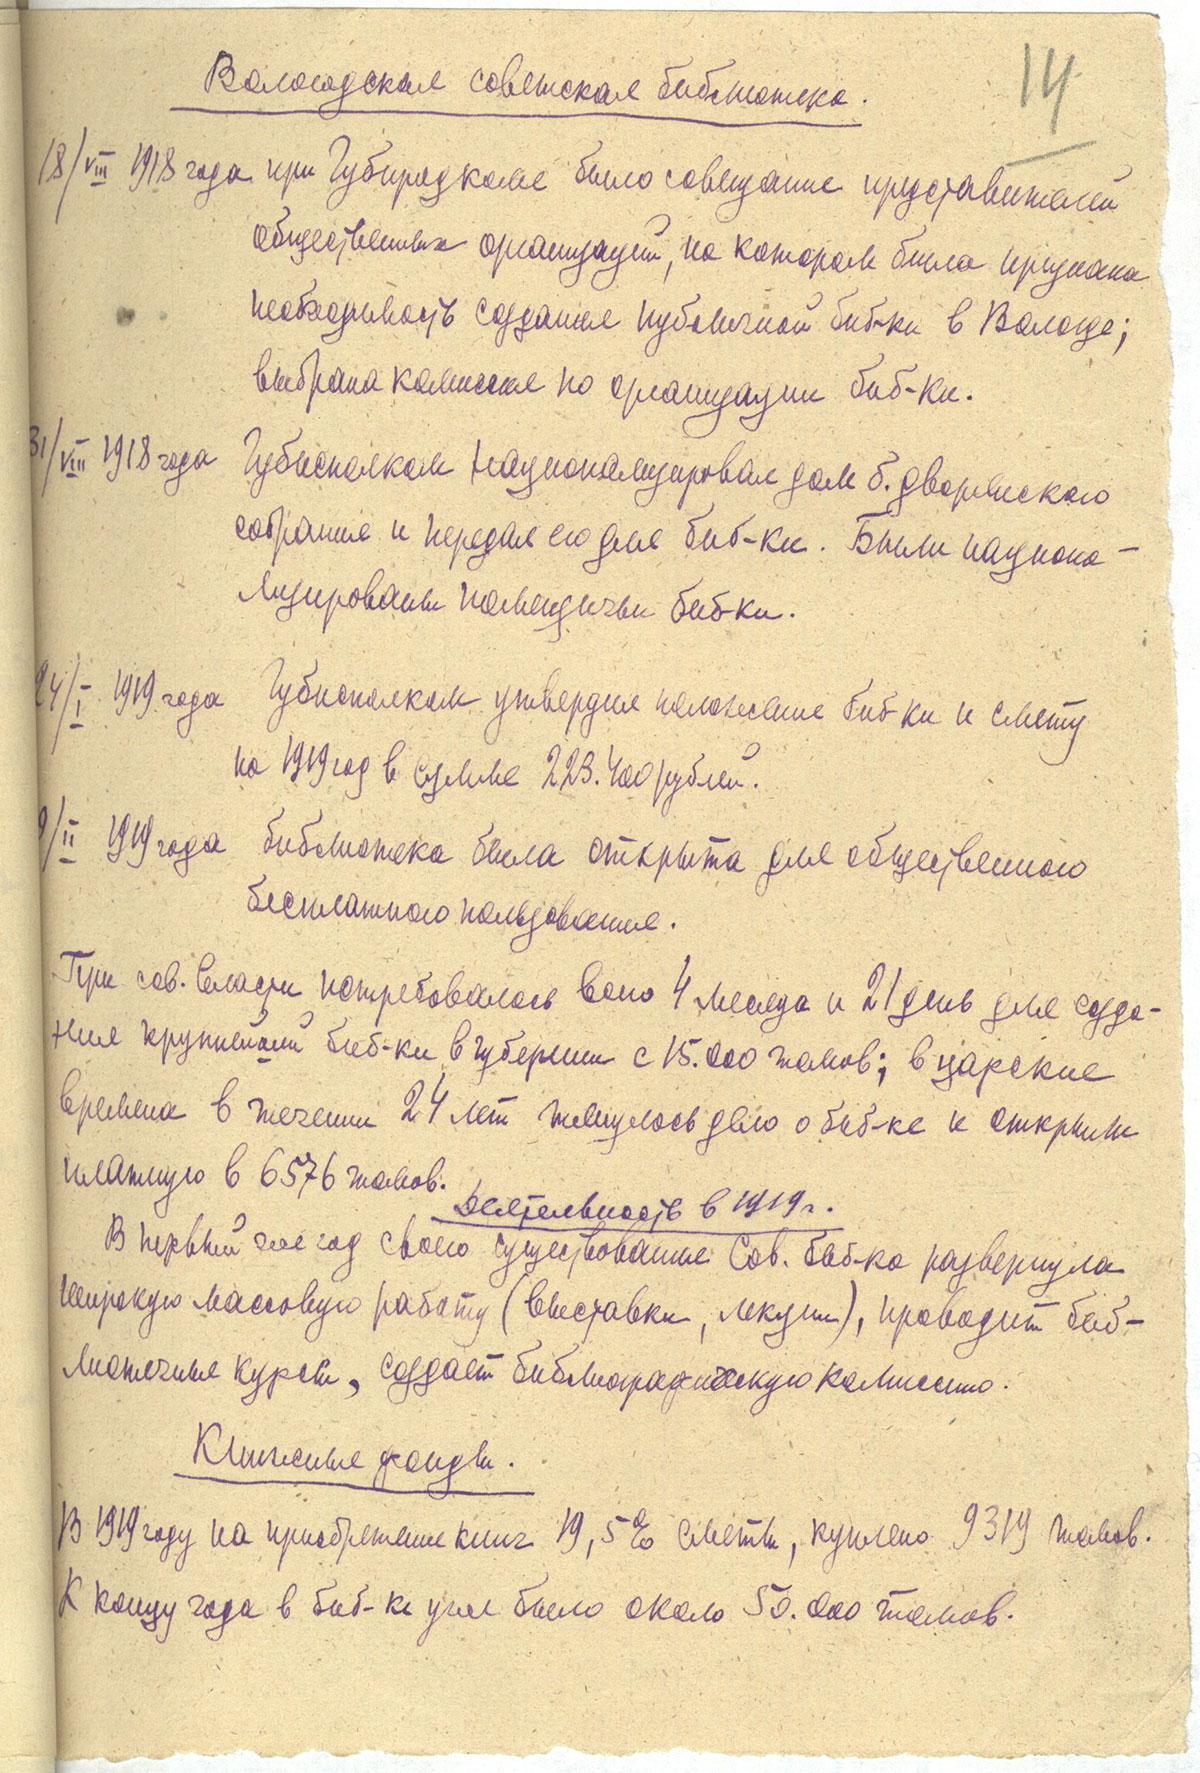 14
Вологодская советская библиотека.
18/VIII 1918 года при Губпродкоме было совещание представителей
общественных организаций, на котором была признана
необходимость создания публичной биб-ки в Вологде;
выбрана комиссия по организации биб-ки.
31/VIII 1918 года Губисполком национализировал дом б. дворянского
собрания и передал его для биб-ки. Были национа-
лизированы помещичьи биб-ки.
24/I 1919 года Губисполком утвердил положение биб-ки и смету
на 1919 год в сумме 223.400 рублей.
9/II 1919 года библиотека была открыта для общественного
бесплатного пользования.
При сов. власти потребовалось всего 4 месяца и 21 день для созда-
ния крупнейшей биб-ки в губернии с 15.000 томов; в царские
времена в течении 24 лет тянулось дело о биб-ке и открыли
платную в 6576 томов.
Деятельность в 1919 г.
В первый же год своего существования Сов. биб-ка развернула
широкую массовую работу (выставки, лекции), проводит биб-
лиотечные курсы, создает библиографическую комиссию.
Книжные фонды.
В 1919 году на приобретение книг 19,5% сметы, куплено 9319 томов.
К концу года в биб-ке уже было около 50.000 томов.